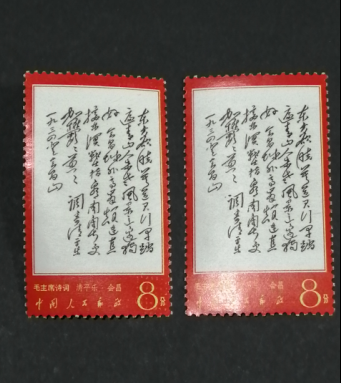 东方欲晓莫道君行早踏
遍青山人未老风景这边独
好会昌城外高峰颠连直
接东溟战士指看南粤更
加郁郁葱葱 调寄清平乐
一九三四年
毛主席诗词 清平乐 会昌
中国人民邮政 8分
东方欲晓莫道君行早踏
遍青山人未老风景这边独
好会昌城外高峰颠连直
接东溟战士指看南粤更
加郁郁葱葱 调寄清平乐
一九三四年
毛主席诗词 清平乐 会昌
中国人民邮政 8分